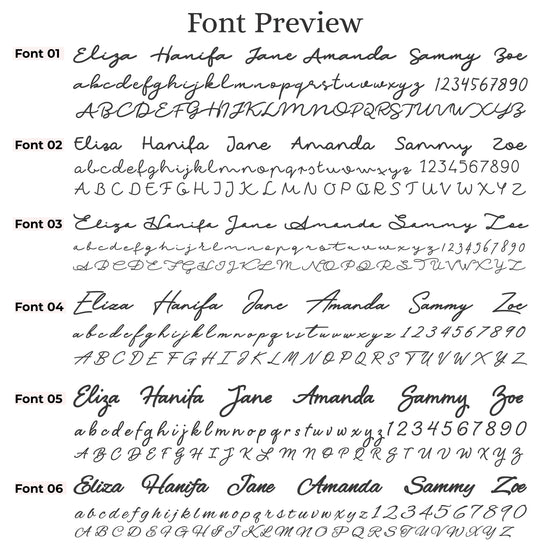 Font Preview
Font 01 Eliza Hanifa Jane Amanda Sammy Zoe
abcdefghijklmnopqrstuvwxyz 1234567890
ABCDEFGHIJKLMNOPQRSTUVWXYZ
Font 02 Eliza Hanifa Jane Amanda Sammy Zoe
abcdefghijklmnopqrstuvwxyz 1234567890
ABCDEFGHIJKLMNOPQRSTUVWXYZ
Font 03 Eliza Hanifa Jane Amanda Sammy Zoe
abcdefghijklmnopqrstuvwxyz 1234567890
ABCDEFGHIJKLMNOPQRSTUVWXYZ
Font 04 Eliza Hanifa Jane Amanda Sammy Zoe
abcdefghijklmnopqrstuvwxyz 1234567890
ABCDEFGHIJKLMNOPQRSTUVWXYZ
Font 05 Eliza Hanifa Jane Amanda Sammy Zoe
abcdefghijklmnopqrstuvwxyz 1234567890
ABCDEFGHIJKLMNOPQRSTUVWXYZ
Font 06 Eliza Hanifa Jane Amanda Sammy Zoe
abcdefghijklmnopqrstuvwxyz 1234567890
ABCDEFGHIJKLMNOPQRSTUVWXYZ